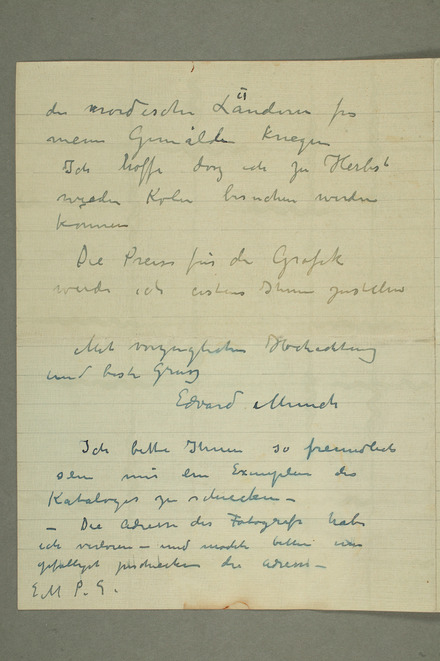 den nordischen Ländern für
meine Gemälde kriegen
Ich hoffe daz ich zu Herbst
wieder Koln besuchen werden
konnen
Die Preise für die Grafik
werde ich erstens Ihnen zustellen
Mit vorzuglichen Hochachtung
und beste Gruss
Edvard Munch
Ich bette Ihnen so freundlich
sein mir ein Exemplar des
Kataloges zu schicken –
– Die Adresse des Fotografs habe
ich verloren – und mochte bitten um
gefälligst die Adresse –
E M P. S.